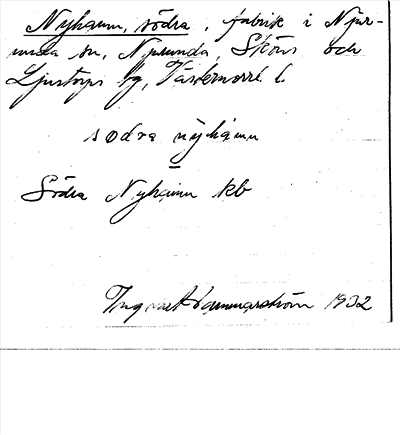 Nyhamn, södra, fabrik i Njur-
unda sn, Njurunda, Sköns och
Ljustorps tg, Västernorrl. l.
södra nyhamn
Södra Nyhamn kb
Ingvar Hammarström 1932